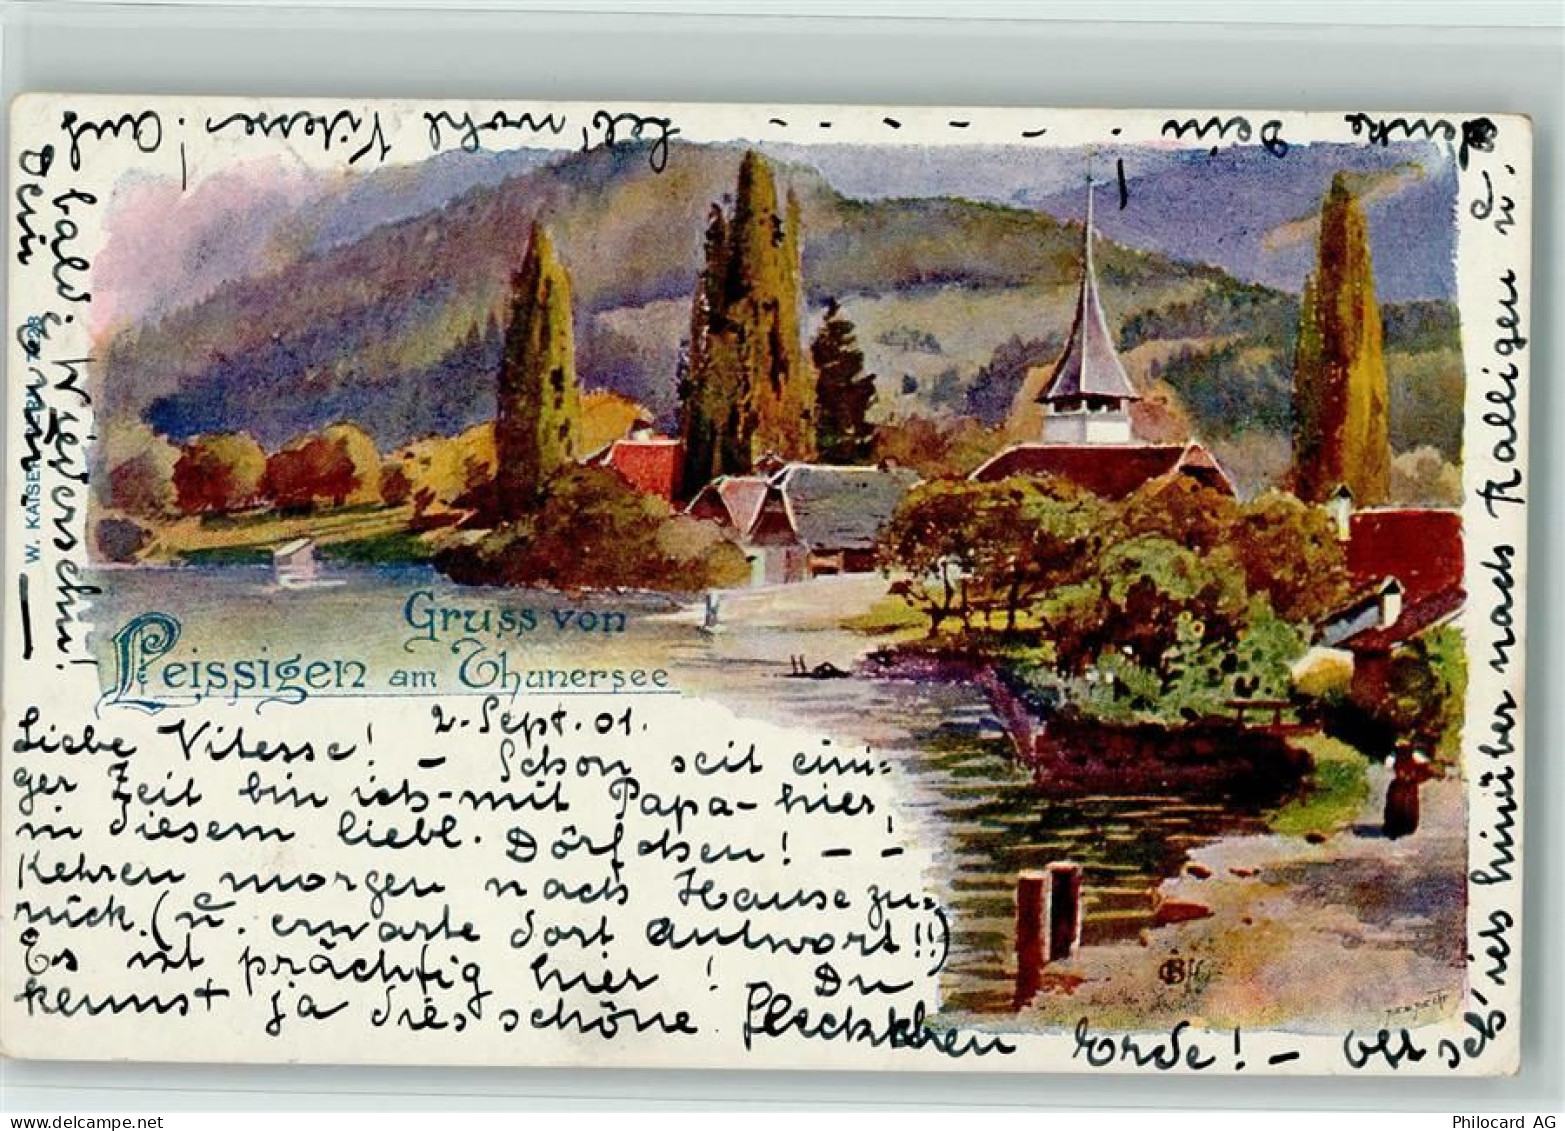 Gruss von
Leissigen am Thunersee
W. KAISER, BERN
2. Sept. 01.
Liebe Vitesse! – Schon seit eini=
ger Zeit bin ich – mit Papa – hier,
in diesem liebl. Dörfchen! – –
Kehren morgen nach Hause zu=
rück. (u. erwarte dort Antwort!!)
Es ist prächtig hier! Du
kennst ja dies schöne Fleckchen Erde! – Oft seh'
ich hinüber nach Ralligen u.
denke Dein - - - - - - - Leb' wohl Vitesse! Auf
bald. Wiedersehn!
Dein
Philocard AG